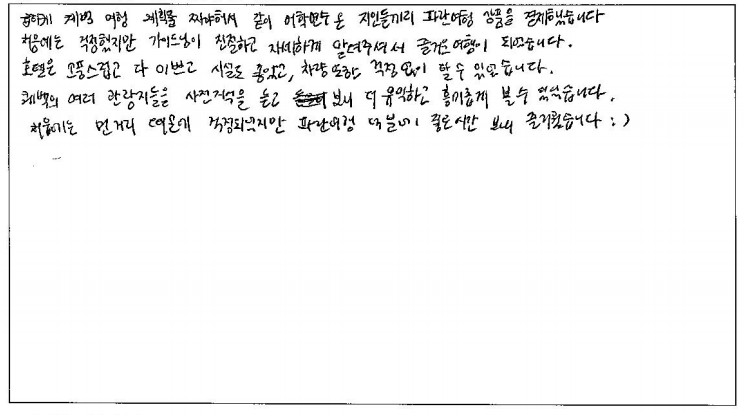 급하게 퀘벡 여행 계획을 짜야해서 같이 어학연수 온 지인들끼리 파란여행 상품을 결제했습니다
처음에는 걱정했지만 가이드님이 친절하고 자세하게 알려주셔서 즐거운 여행이 되었습니다.
호텔은 고풍스럽고 다 이쁘고 시설도 좋았고, 차량 또한 걱정 없이 탈 수 있었습니다.
퀘벡의 여러 관광지들을 사전지식을 듣고 보니 더 유익하고 흥미롭게 볼 수 있었습니다.
처음에는 먼거리 여행에 걱정되었지만 파란여행 덕분에 좋은시간 보내 즐거웠습니다 : )